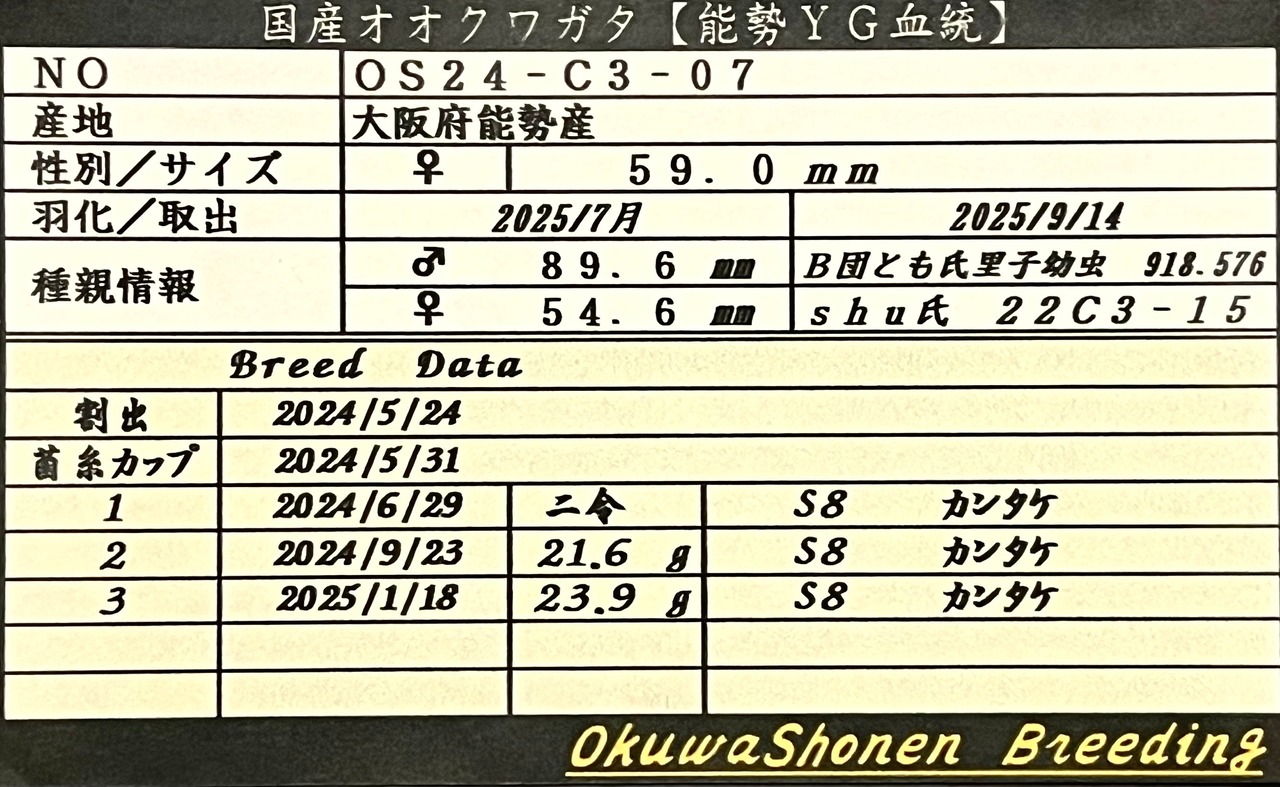 国産オオクワガタ【能勢ＹＧ血統】
NO OS24-C3-07
産地 大阪府能勢産
性別／サイズ ♀ 59.0 mm
羽化／取出 2025/7月 2025/9/14
種親情報 ♂ 89.6 mm B団とも氏里子幼虫 918.576
♀ 54.6 mm shu氏 22C3-15
Breed Data
割出 2024/5/24
菌糸カップ 2024/5/31
1 2024/6/29 二令 S8 カンタケ
2 2024/9/23 21.6 g S8 カンタケ
3 2025/1/18 23.9 g S8 カンタケ
OkuwaShonen Breeding